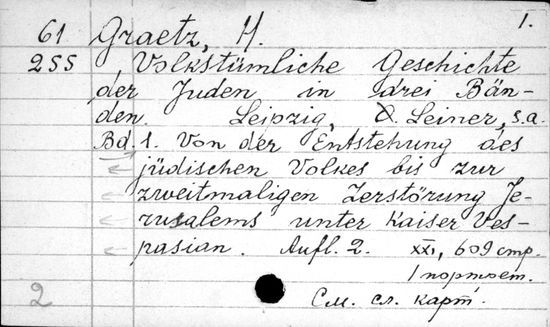 1.
61 Graetz, H.
255 Volkstümliche Geschichte
der Juden in drei Bän-
den. Leipzig, O. Leiner, s.a.
Bd. 1. Von der Entstehung des
jüdischen Volkes bis zur
zweitmaligen Zerstörung Je-
rusalems unter Kaiser Ves-
pasian. Aufl. 2. XXI, 609 стр.
1 портрет.
2 См. сл. карт.